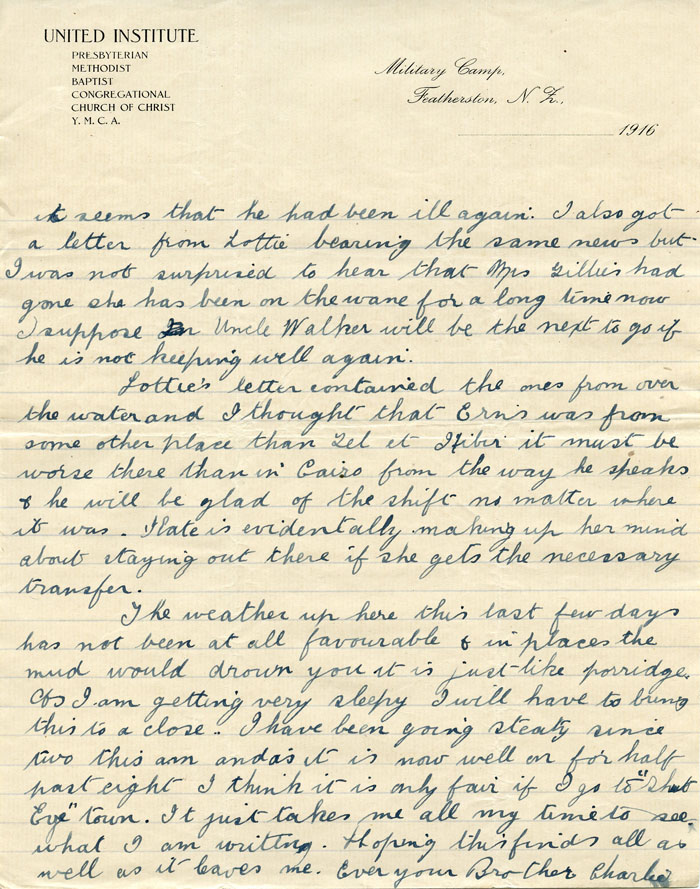 UNITED INSTITUTE
PRESBYTERIAN
METHODIST
BAPTIST
CONGREGATIONAL
CHURCH OF CHRIST
Y. M. C. A.
Military Camp,
Featherston, N. Z.,
1916
it seems that he had been ill again. I also got
a letter from Lottie bearing the same news but
I was not surprised to hear that Mrs Gillies had
gone she has been on the wane for a long time now
I suppose Uncle Walker will be the next to go if
he is not keeping well again.
Lottie's letter contained the ones from over
the water and I thought that Erns was from
some other place than Zel et Kibir it must be
worse there than in Cairo from the way he speaks
& he will be glad of the shift no matter where
it was. Kate is evidentally making up her mind
about staying out there if she gets the necessary
transfer.
The weather up here this last few days
has not been at all favourable & in places the
mud would drown you it is just like porridge.
As I am getting very sleepy I will have to bring
this to a close.. I have been going steady since
two this am and as it is now well on for half
past eight I think it is only fair if I go to "Shut
Eye" town. It just takes me all my time to see
what I am writing. Hoping this finds all as
well as it leaves me. Ever your Brother Charlie